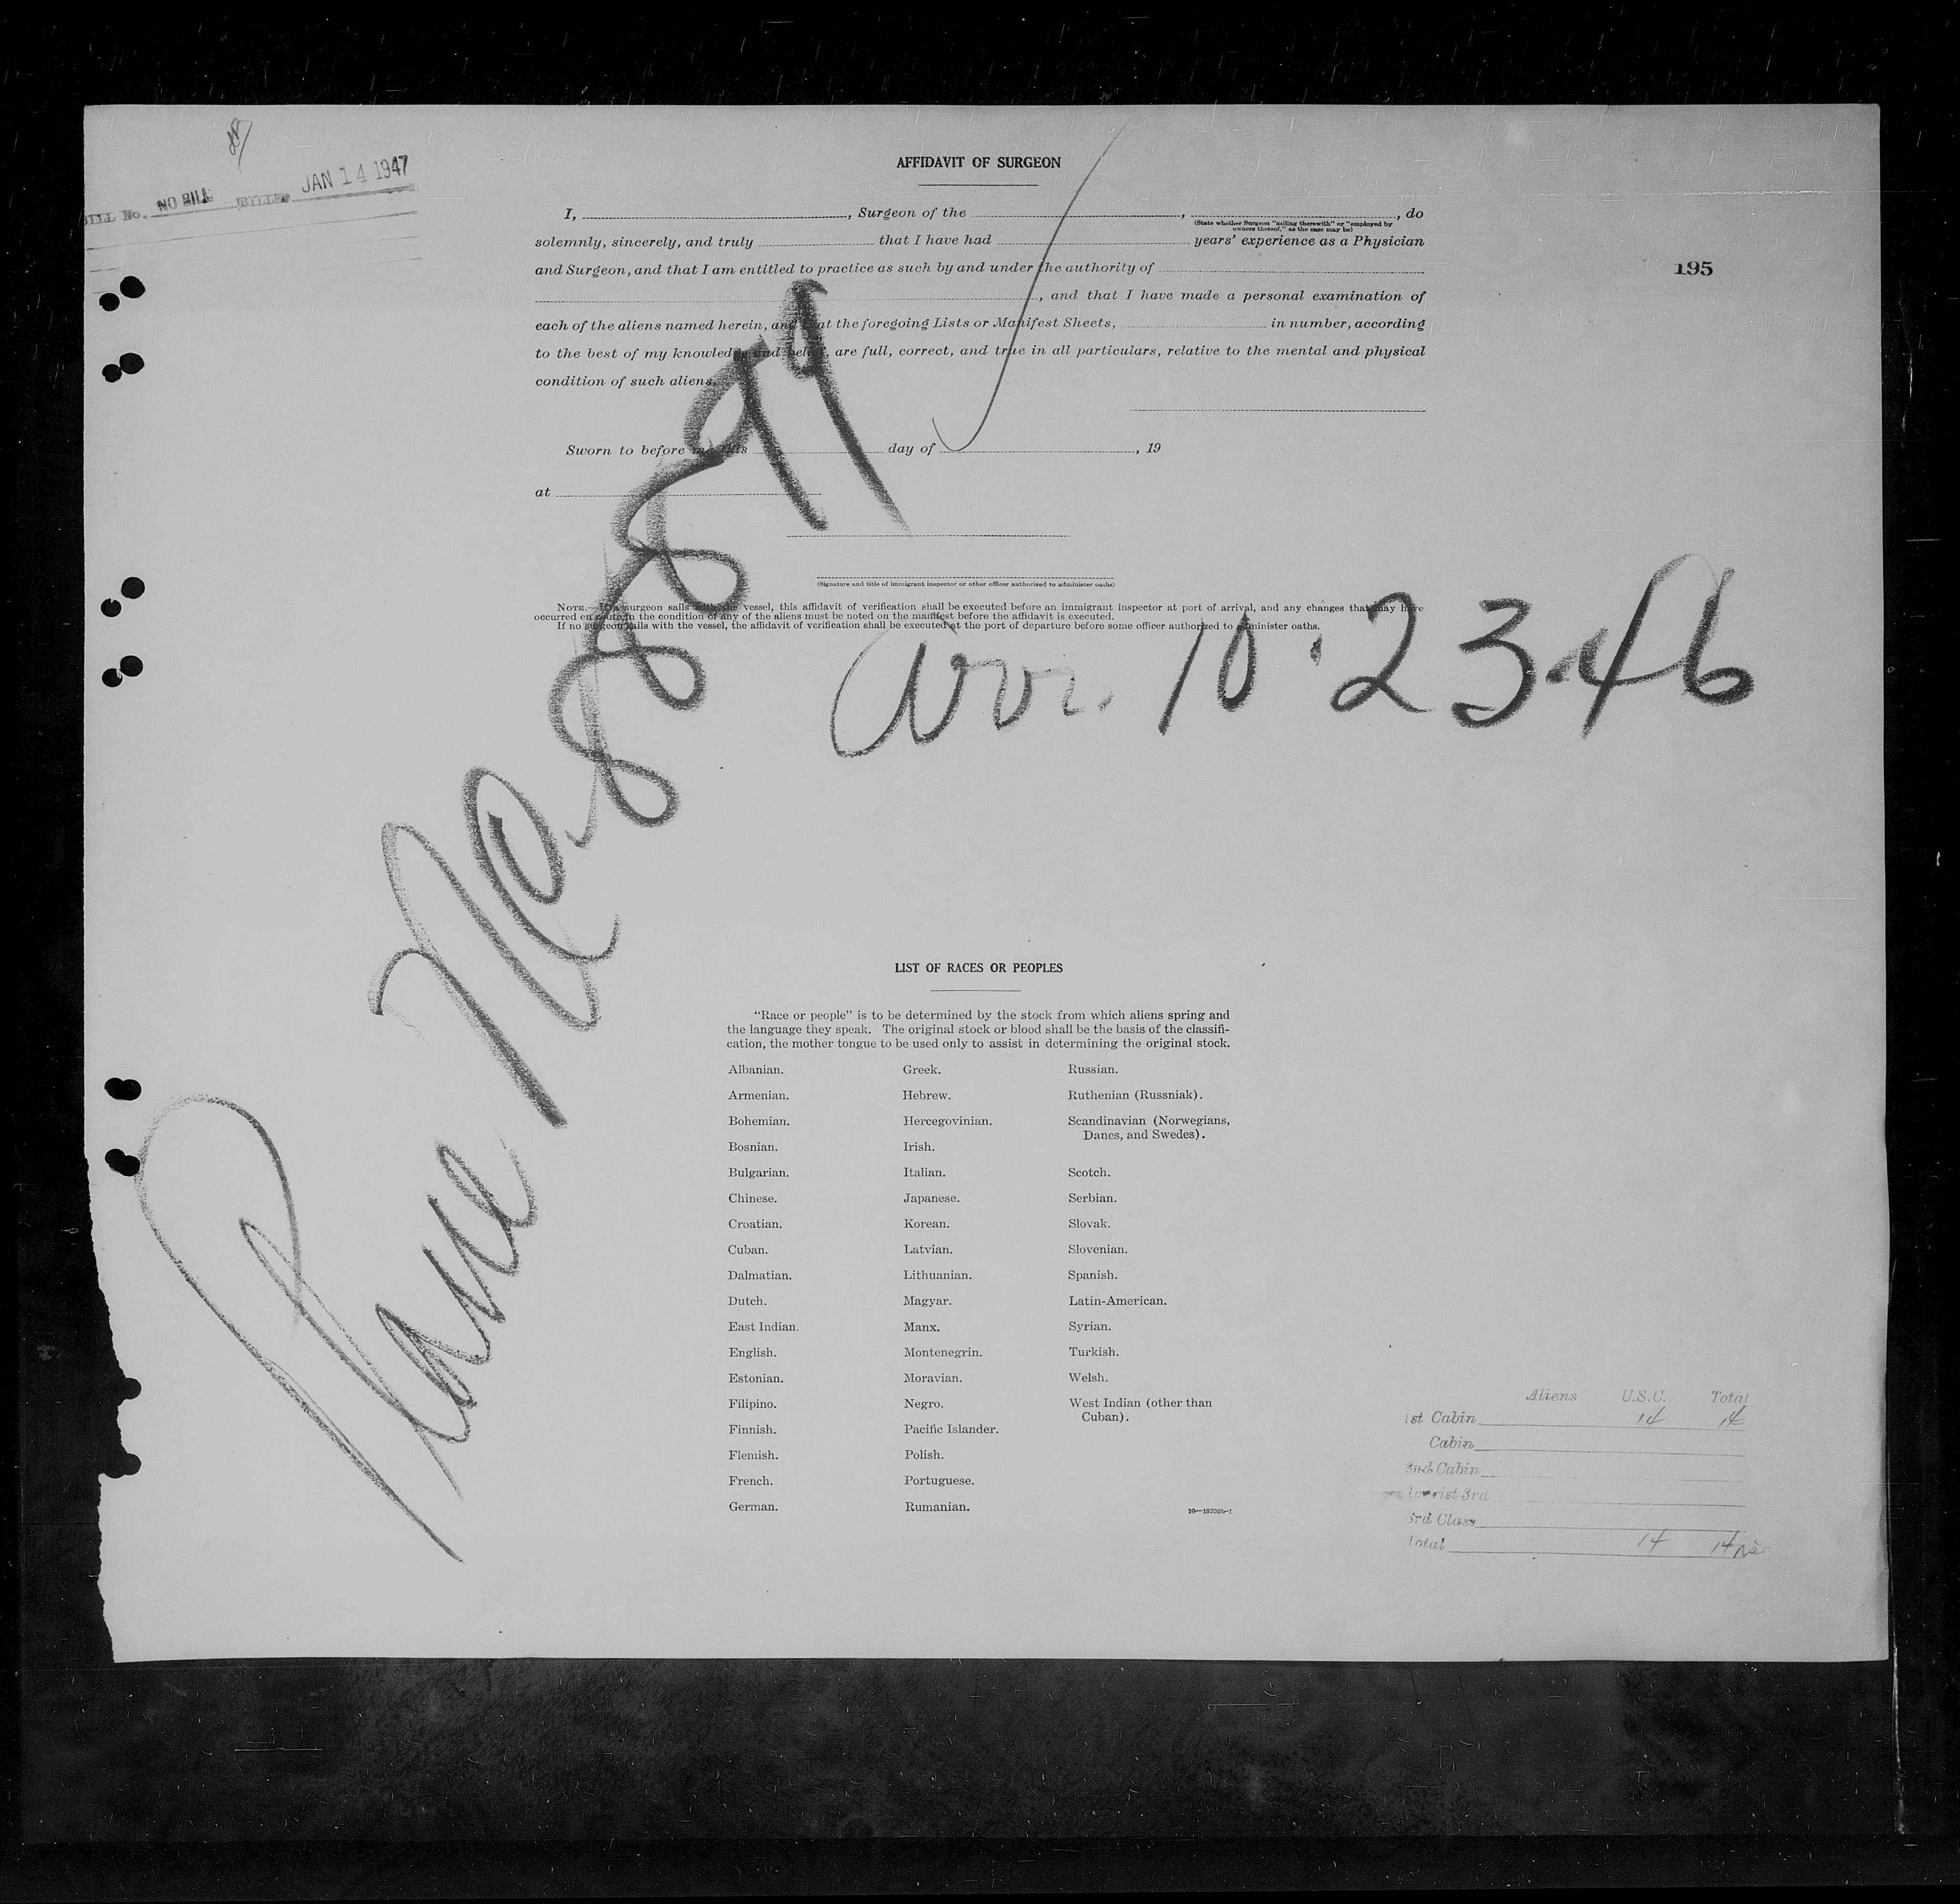 BILL No. NO BILL BILLED JAN 14 1947
AFFIDAVIT OF SURGEON
I, , Surgeon of the , , do
(State whether Surgeon "sailing therewith" or "employed by
owners thereof," as the case may be)
solemnly, sincerely, and truly that I have had years' experience as a Physician
and Surgeon, and that I am entitled to practice as such by and under the authority of
195
, and that I have made a personal examination of
each of the aliens named herein, and that the foregoing Lists or Manifest Sheets, in number, according
to the best of my knowledge and belief, are full, correct, and true in all particulars, relative to the mental and physical
condition of such aliens.
Sworn to before me this day of , 19
at
(Signature and title of immigrant inspector or other officer authorized to administer oaths)
NOTE.—If a surgeon sails with the vessel, this affidavit of verification shall be executed before an immigrant inspector at port of arrival, and any changes that may have
occurred en route in the condition of any of the aliens must be noted on the manifest before the affidavit is executed.
If no surgeon sails with the vessel, the affidavit of verification shall be executed at the port of departure before some officer authorized to administer oaths.
Plane NC-88899
Arr. 10-23-46
LIST OF RACES OR PEOPLES
"Race or people" is to be determined by the stock from which aliens spring and
the language they speak. The original stock or blood shall be the basis of the classifi-
cation, the mother tongue to be used only to assist in determining the original stock.
Albanian. Greek. Russian.
Armenian. Hebrew. Ruthenian (Russniak).
Bohemian. Hercegovinian. Scandinavian (Norwegians,
Danes, and Swedes).
Bosnian. Irish.
Bulgarian. Italian. Scotch.
Chinese. Japanese. Serbian.
Croatian. Korean. Slovak.
Cuban. Latvian. Slovenian.
Dalmatian. Lithuanian. Spanish.
Dutch. Magyar. Latin-American.
East Indian. Manx. Syrian.
English. Montenegrin. Turkish.
Estonian. Moravian. Welsh.
Filipino. Negro. West Indian (other than
Cuban).
Finnish. Pacific Islander.
Flemish. Polish.
French. Portuguese.
German. Rumanian.
16—18709b-1
Aliens U.S.C. Total
1st Cabin 14 14
Cabin
2nd Cabin
Tourist 3rd
3rd Class
Total 14 14